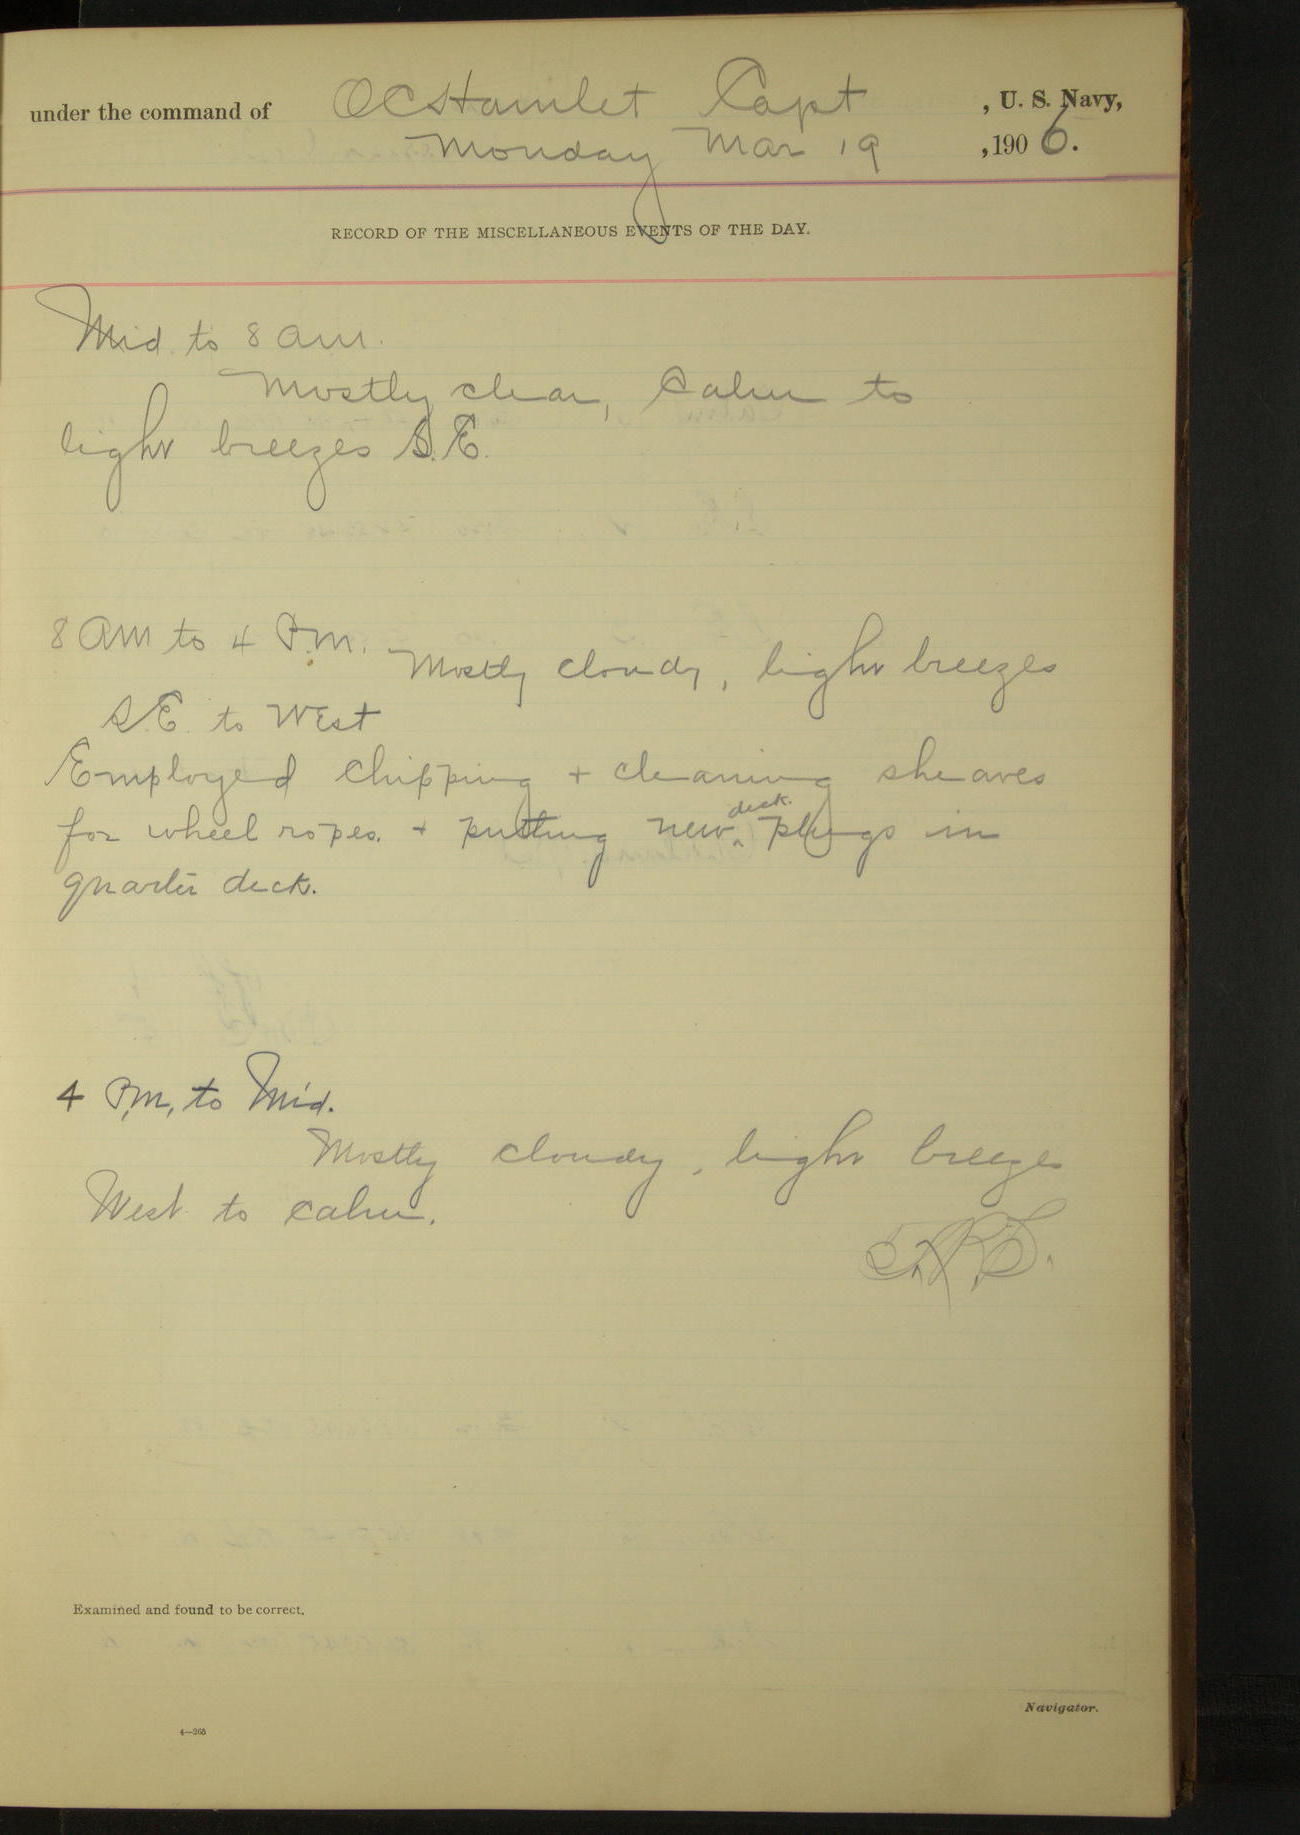 under the command of O C Hamlet Capt , U. S. Navy,
Monday Mar 19 , 1906.
RECORD OF THE MISCELLANEOUS EVENTS OF THE DAY.
Mid. to 8 am.
Mostly clear, Calm to
light breezes S.E.
8 AM to 4 P.m.
Mostly cloudy, light breezes
S.E. to West
Employed chipping + cleaning sheaves
for wheel ropes. + putting new deck plugs in
quarter deck.
4 P.m, to Mid.
Mostly cloudy, light breezes
West to calm.
Examined and found to be correct.
Navigator.
4—268